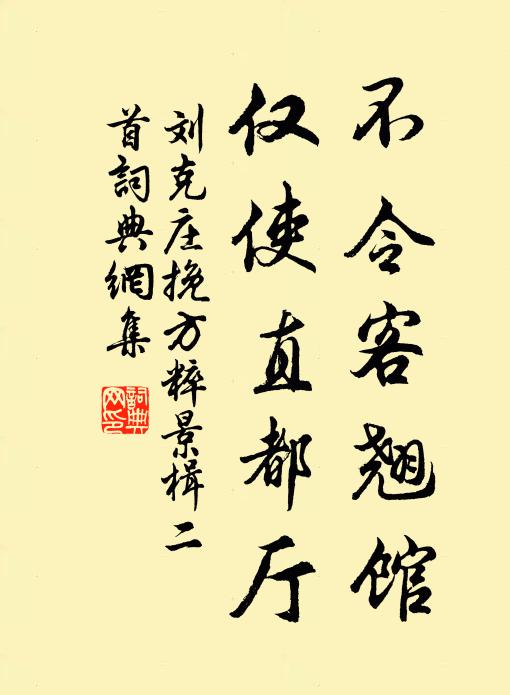 不令客翘馆
仅使直都厅
刘克庄挽方粹景楫二
首詞典網集
詞典
网印